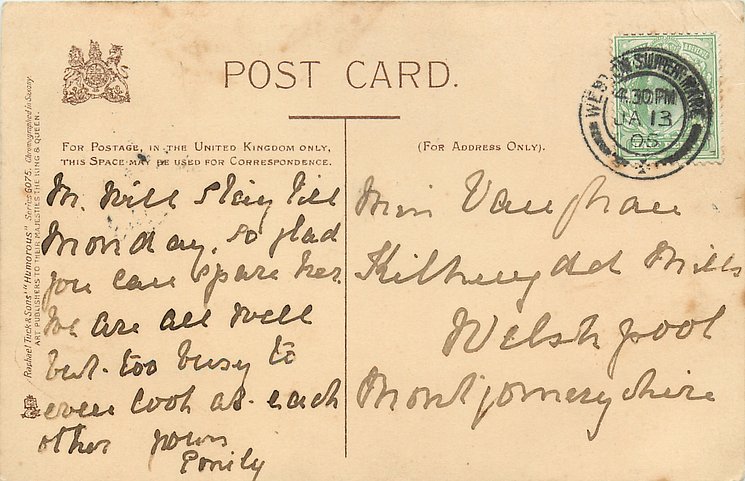 POST CARD.
FOR POSTAGE, IN THE UNITED KINGDOM ONLY,
THIS SPACE MAY BE USED FOR CORRESPONDENCE.
(FOR ADDRESS ONLY).
WESTON SUPER MARE
4.30PM
JA 13
05
Raphael Tuck & Sons' "Humorous" Series 6075. Chromographed in Saxony
ART PUBLISHERS TO THEIR MAJESTIES THE KING & QUEEN.
M. will stay till
Monday, so glad
you can spare her.
We are all well
but too busy to
even look at each
other yours
Miss Vaughan
Mills
Welshpool
Montgomeryshire